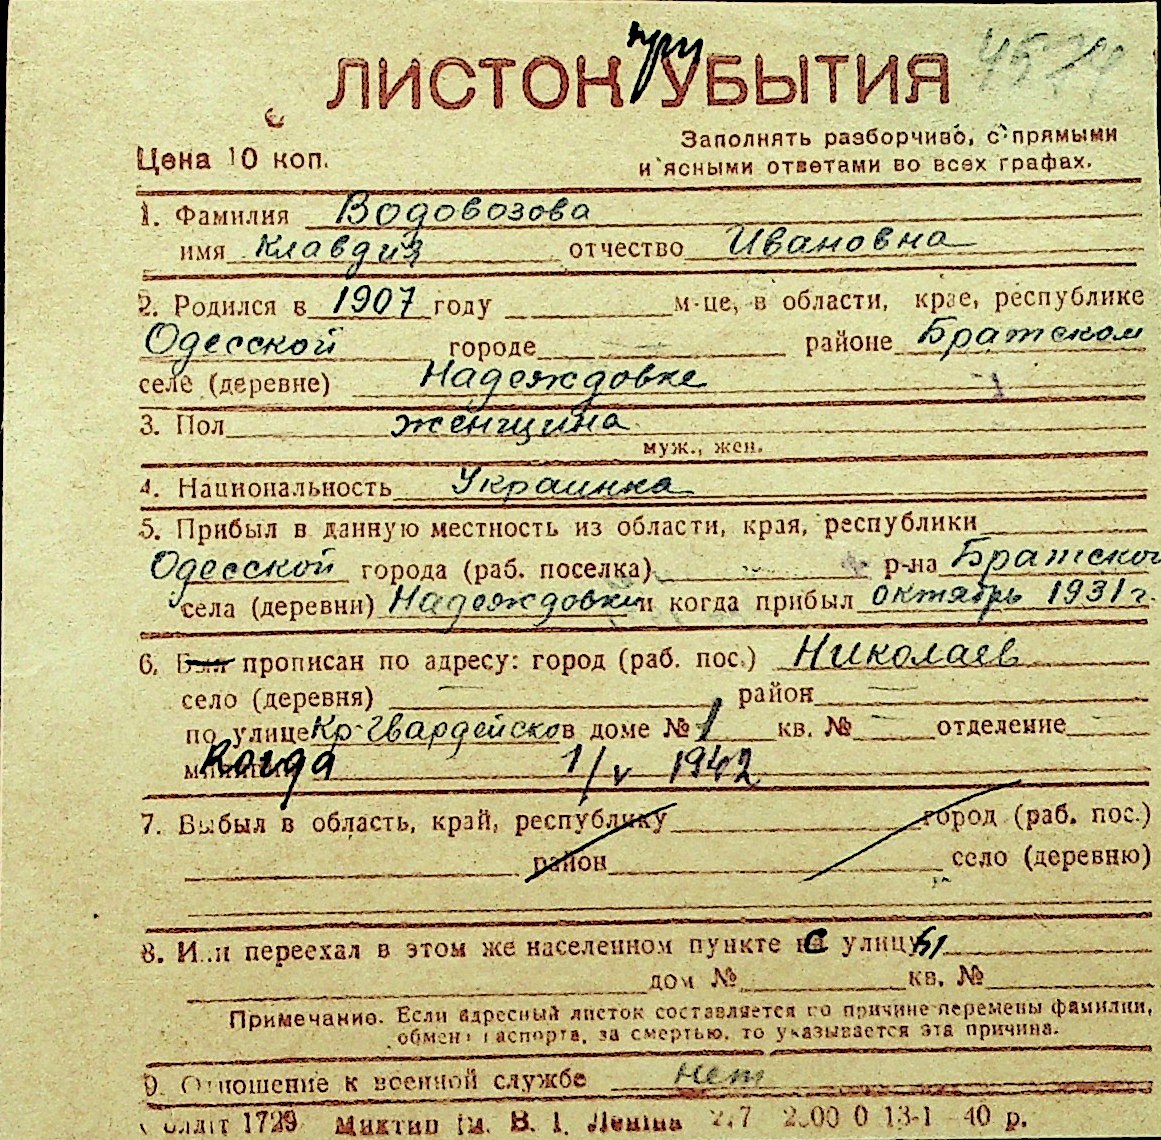 при 4574
ЛИСТОК УБЫТИЯ
Цена 10 коп. Заполнять разборчиво, с прямыми
и ясными ответами во всех графах.
1. Фамилия Водовозова
имя Клавдия отчество Ивановна
2. Родился в 1907 году м-це, в области, крае, республике
Одесской городе районе Братском
селе (деревне) Надеждовке
3. Пол женщина
муж., жен.
4. Национальность Украинка
5. Прибыл в данную местность из области, края, республики
Одесской города (раб. поселка) р-на Братског
села (деревни) Надеждовки и когда прибыл октябрь 1931 г.
6. Был прописан по адресу: город (раб. пос.) Николаев
село (деревня) район
по улице Кр-Гвардейско в доме № 1 кв. № отделение
когда 1/V 1942
7. Выбыл в область, край, республику город (раб. пос.)
район село (деревню)
8. Или переехал в этом же населенном пункте с улицы
дом № кв. №
Примечание. Если адресный листок составляется по причине перемены фамилии,
обмена паспорта, за смертью, то указывается эта причина.
9. Отношение к военной службе нет
Облліт 1729 Миктип ім. В. І. Леніна 2.00 0 13-1-40 р.